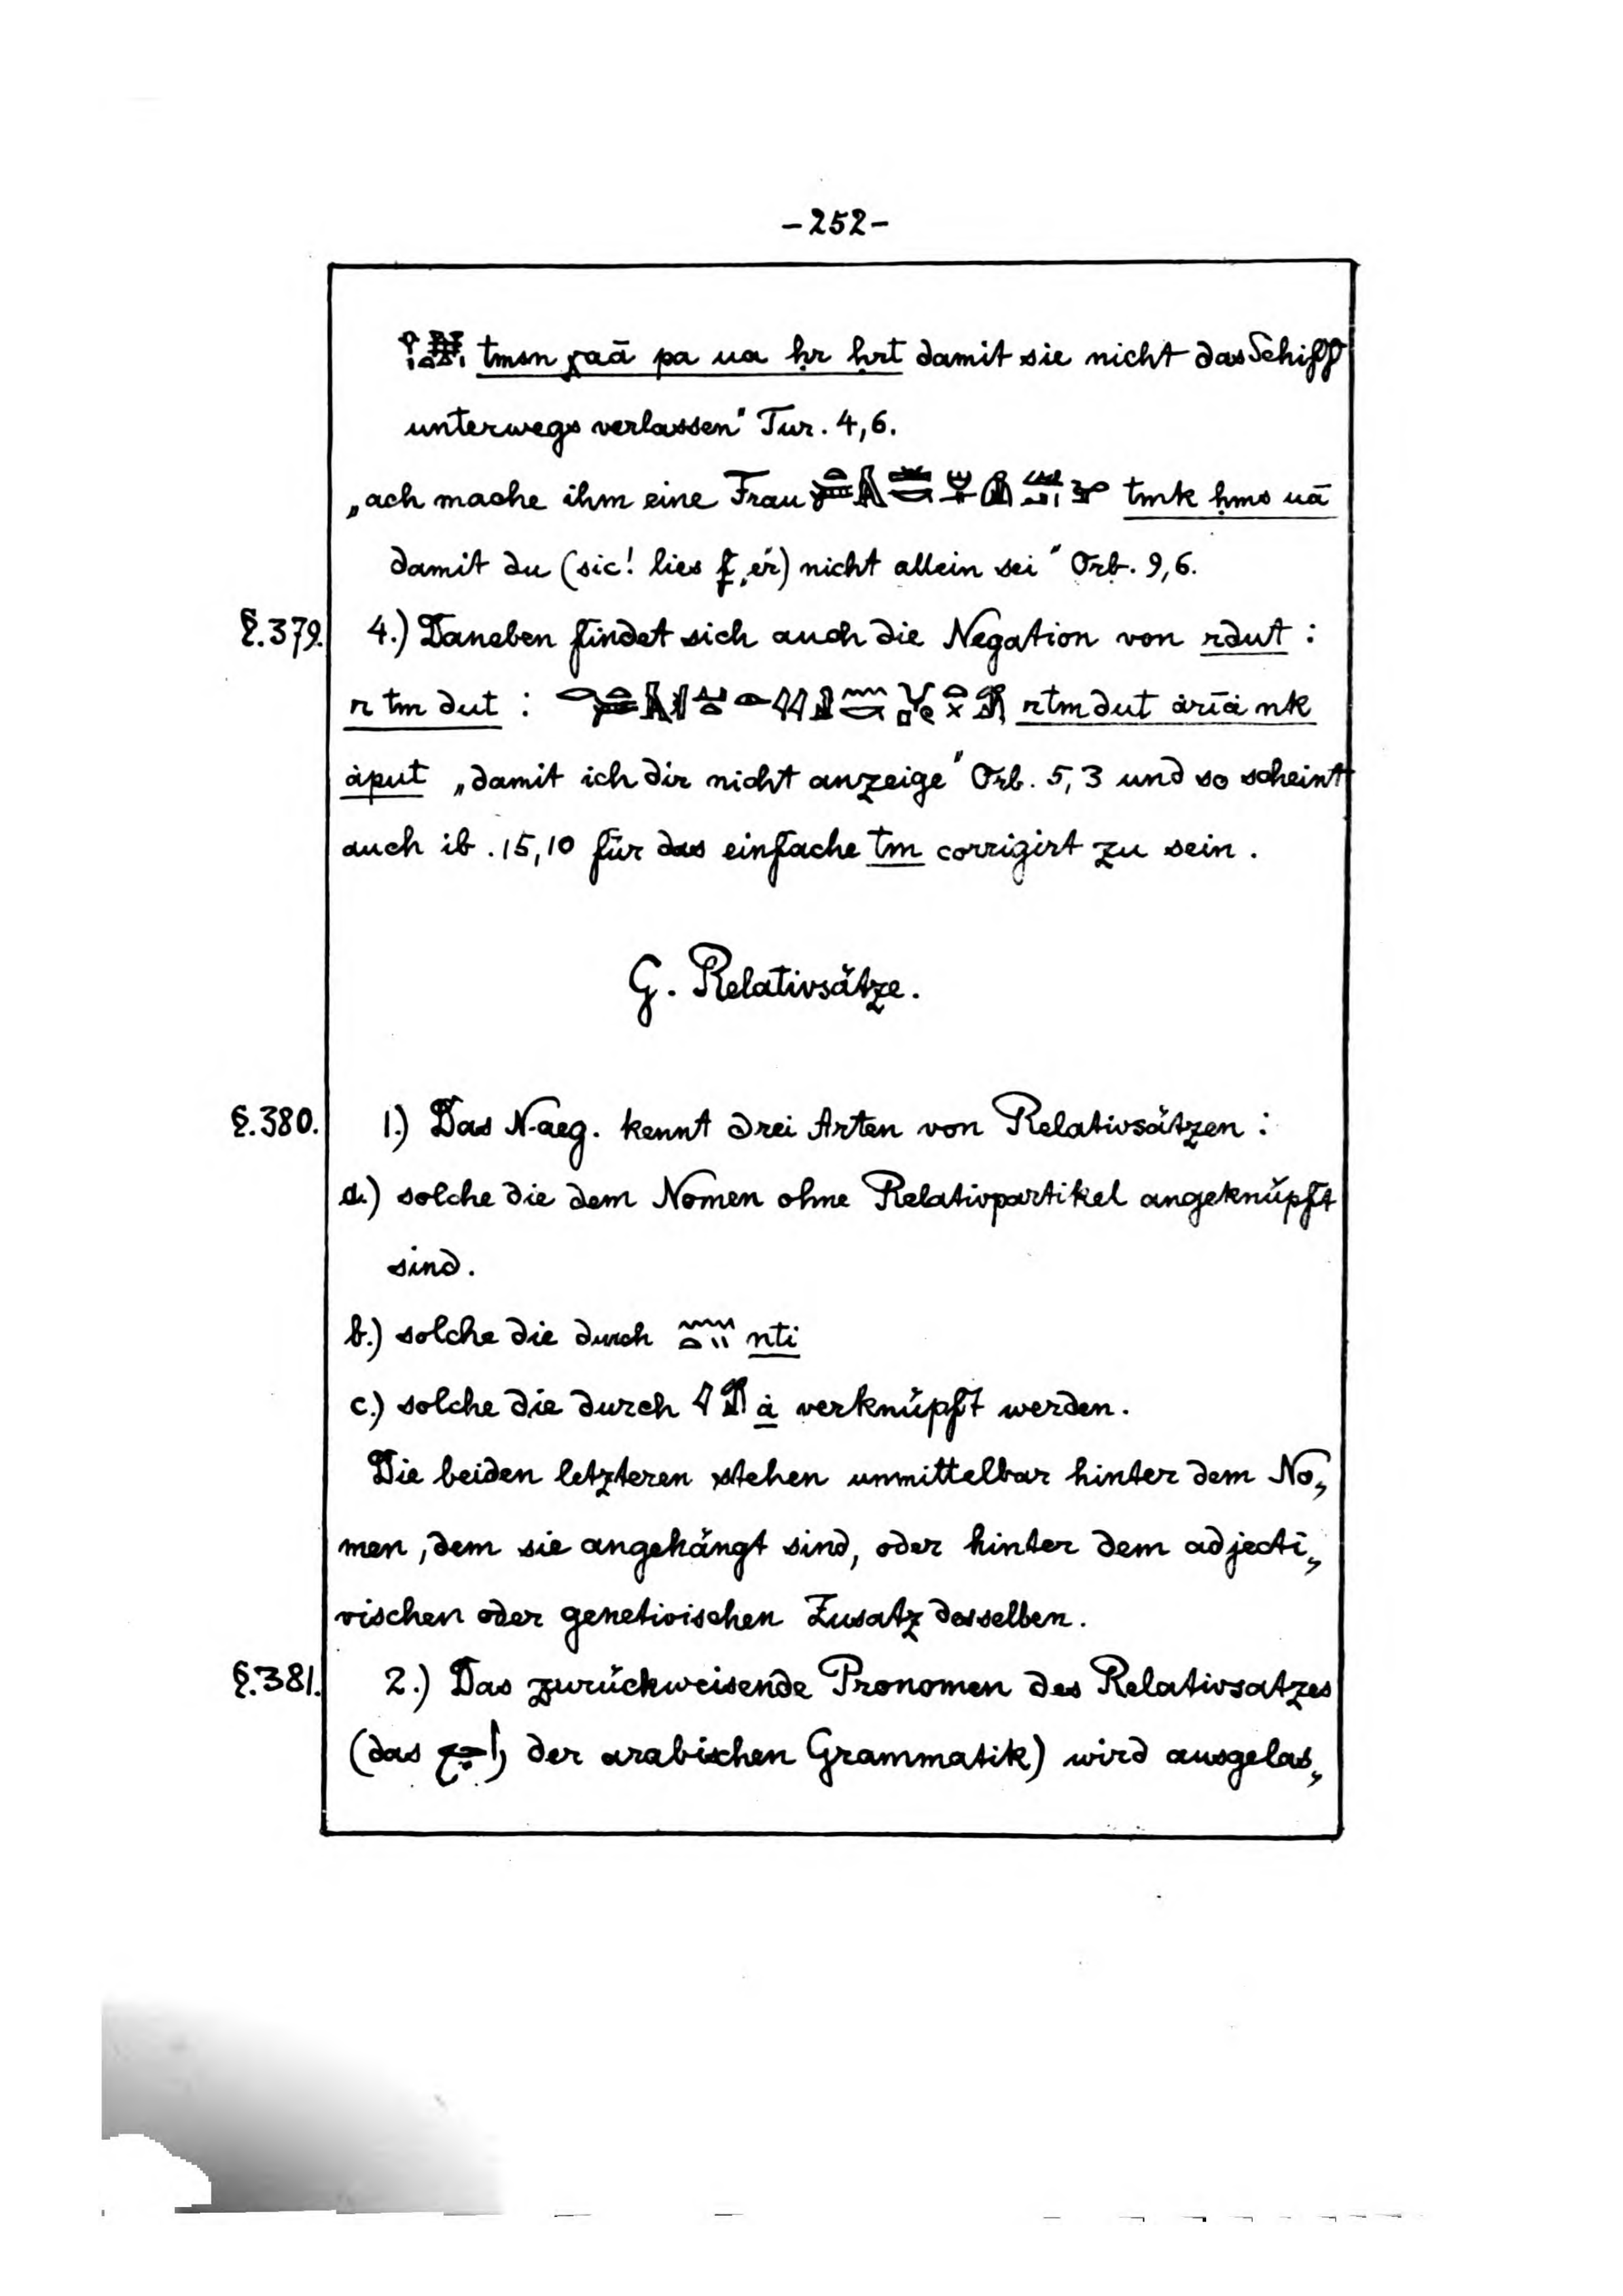 -252-
tmsn χaā pa ua ḥr ḥrt damit sie nicht das Schiff
unterwegs verlassen" Tur. 4,6.
„ach mache ihm eine Frau tmk ḥms uā
damit du (sic! lies f „er) nicht allein sei" Orb. 9,6.
§.379. 4.) Daneben findet sich auch die Negation von rdut :
r tm dut : rtm dut ȧrīȧ nk
ȧput „damit ich dir nicht anzeige" Orb. 5,3 und so scheint
auch ib. 15,10 für das einfache tm corrigirt zu sein.
G. Relativsätze.
§.380. 1.) Das N-aeg. kennt drei Arten von Relativsätzen :
a.) solche die dem Nomen ohne Relativpartikel angeknüpft
sind.
b.) solche die durch nti
c.) solche die durch ȧ verknüpft werden.
Die beiden letzteren stehen unmittelbar hinter dem No„
men, dem sie angehängt sind, oder hinter dem adjecti„
vischen oder genetivischen Zusatz desselben.
§.381. 2.) Das zurückweisende Pronomen des Relativsatzes
(das راجع der arabischen Grammatik) wird ausgelas„